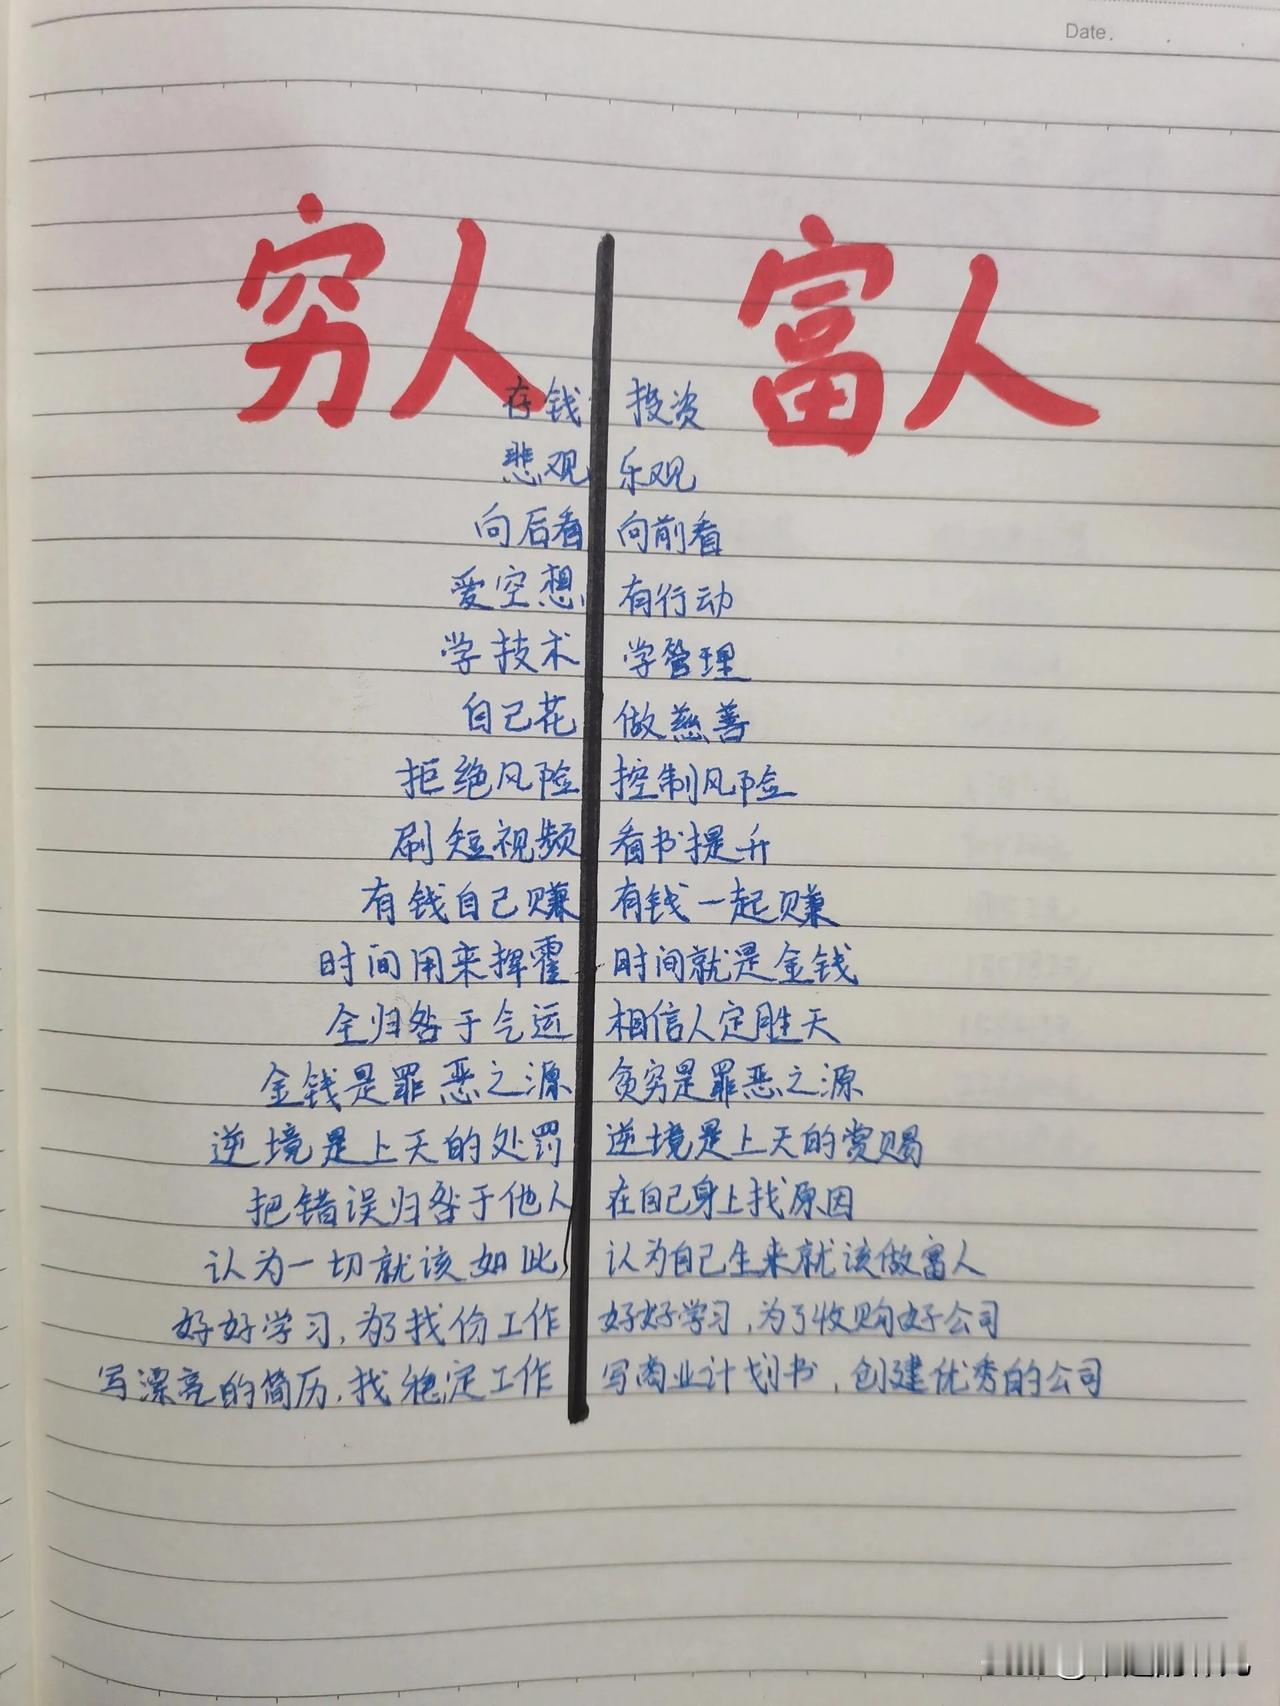 Date.
穷人 富人
存钱 投资
悲观 乐观
向后看 向前看
爱空想 有行动
学技术 学管理
自己花 做慈善
拒绝风险 控制风险
刷短视频 看书提升
有钱自己赚 有钱一起赚
时间用来挥霍 时间就是金钱
全归咎于气运 相信人定胜天
金钱是罪恶之源 贫穷是罪恶之源
逆境是上天的处罚 逆境是上天的赏赐
把错误归咎于他人 在自己身上找原因
认为一切就该如此 认为自己生来就该做富人
好好学习,为了找份工作 好好学习,为了收购好公司
写漂亮的简历,找稳定工作 写商业计划书,创建优秀的公司